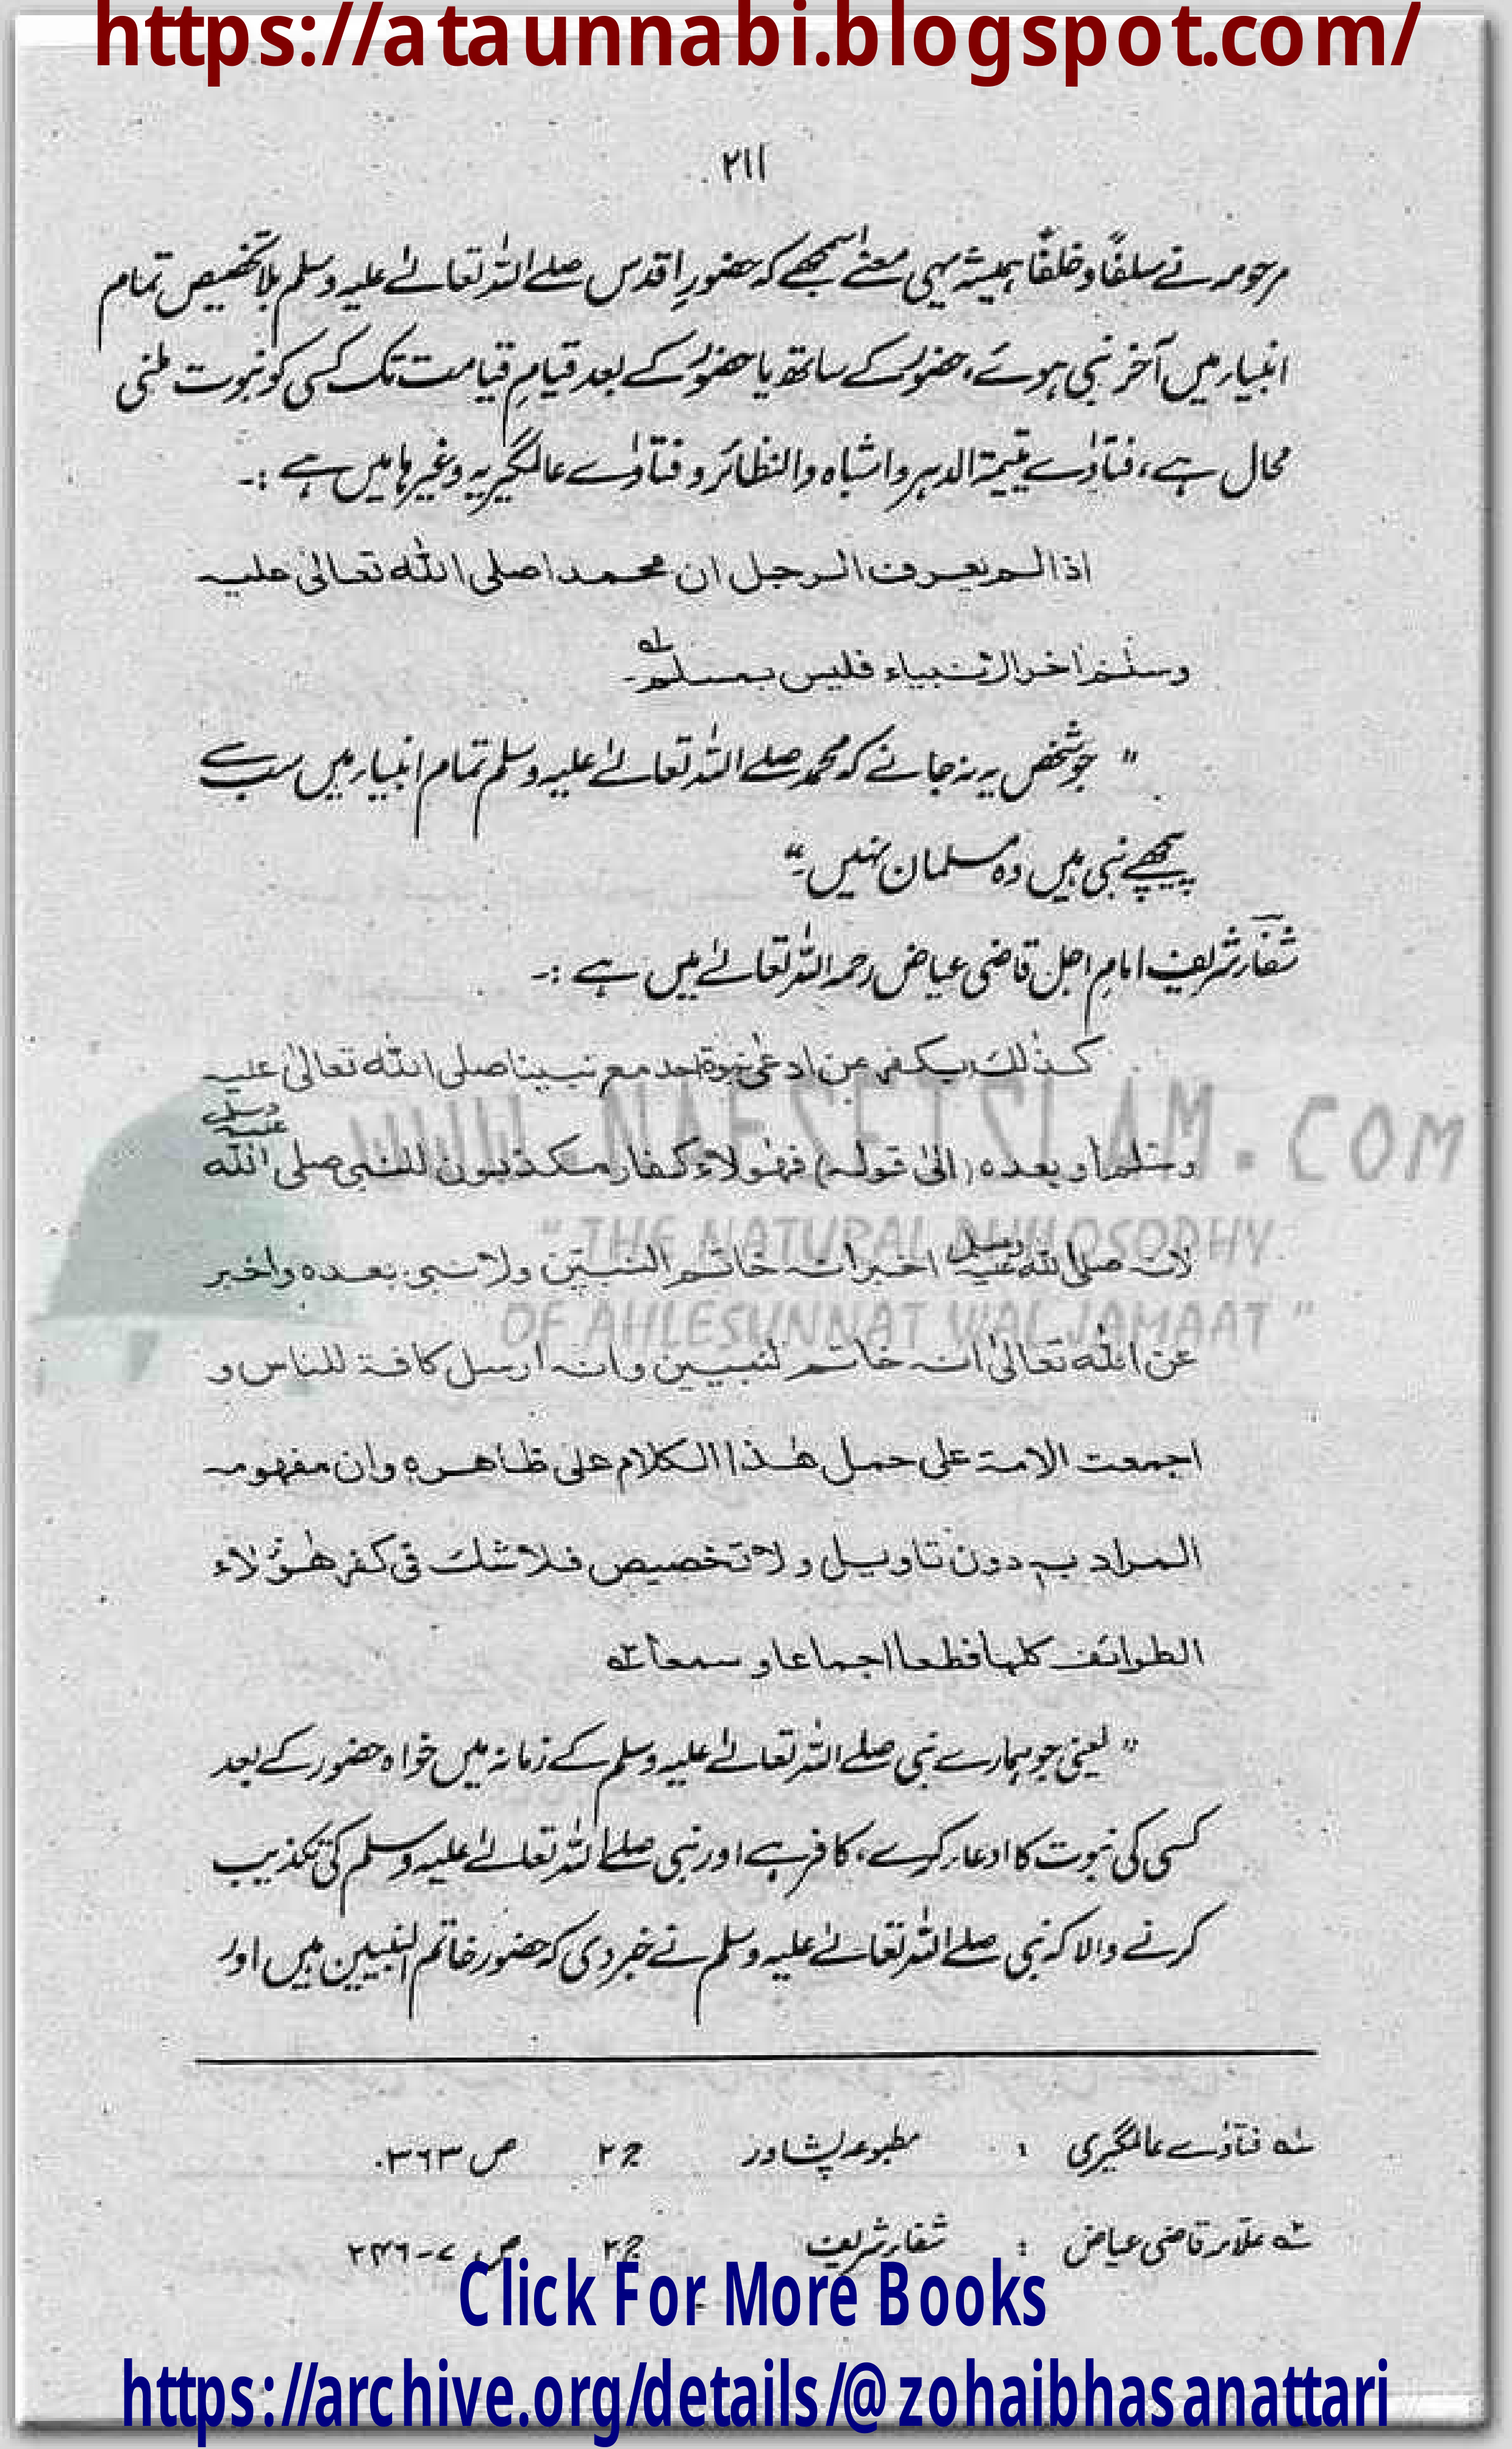 https://ataunnabi.blogspot.com/
۲۱۱
مرحومہ نے سلفًا و خلفًا ہمیشہ یہی معنےٰ سمجھے کہ حضورِ اقدس صلے اللہ تعالےٰ علیہ وسلم بلا تخصیص تمام
انبیاء میں آخر نبی ہوئے، حضور کے ساتھ یا حضور کے بعد قیامِ قیامت تک کسی کو نبوت ملنی
محال ہے، فتاوٰے یتیمۃ الدہر و اشباہ والنظائر و فتاوٰے عالمگیریہ وغیرہا میں ہے :۔
اذا لم يعرف الرجل ان محمدا صلى الله تعالىٰ عليه
وسلم اٰخر الانبياء فليس بمسلم۔ لہ
" جو شخص یہ نہ جانے کہ محمد صلے اللہ تعالےٰ علیہ وسلم تمام انبیاء میں سب سے
پیچھے نبی ہیں وہ مسلمان نہیں۔"
شفاء شریف امامِ اجل قاضی عیاض رحمہ اللہ تعالےٰ میں ہے :۔
كذٰلك يكفر من ادعىٰ نبوة احد مع نبينا صلى الله تعالىٰ عليه
وسلم او بعده (الىٰ قوله) فهٰولاء كفار مكذبون للنبى صلى الله عليه وسلم
لانه صلى الله عليه وسلم اخبر انه خاتم النبيّن ولا نبى بعده واخبر
عن الله تعالىٰ انه خاتم النبيين وانه ارسل كافة للناس و
اجمعت الامة على حمل هٰذا الكلام علىٰ ظاهره وان مفهومه
المراد به دون تاويل ولا تخصيص فلا شك فى كفر هٰؤلاء
الطوائف كلها قطعا اجماعا و سمعا۔ ٢ه
" یعنی جو ہمارے نبی صلے اللہ تعالےٰ علیہ وسلم کے زمانہ میں خواہ حضور کے بعد
کسی کی نبوت کا ادعاء کرے، کافر ہے اور نبی صلے اللہ تعالےٰ علیہ وسلم کی تکذیب
کرنے والا کہ نبی صلے اللہ تعالےٰ علیہ وسلم نے خبر دی کہ حضور خاتم النبیین ہیں اور
WWW.NAFSEISLAM.COM
" THE NATURAL PHILOSOPHY
OF AHLESUNNAT WAL JAMAAT "
لہ فتاوٰے عالمگیری : مطبوعہ پشاور ج ۲ ص ۳۶۳.
٢ه علامہ قاضی عیاض : شفاء شریف ج ۲ ص ۷-۲۴۶
Click For More Books
https://archive.org/details/@zohaibhasanattari